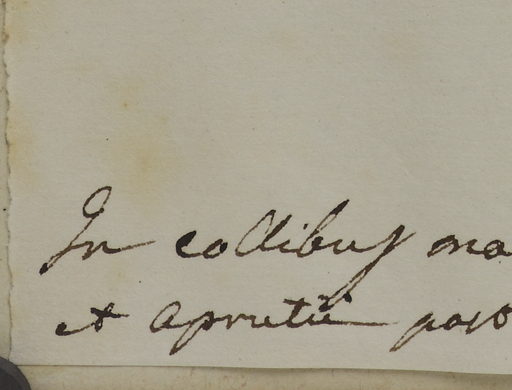 In collibus ma
et Aprutii post